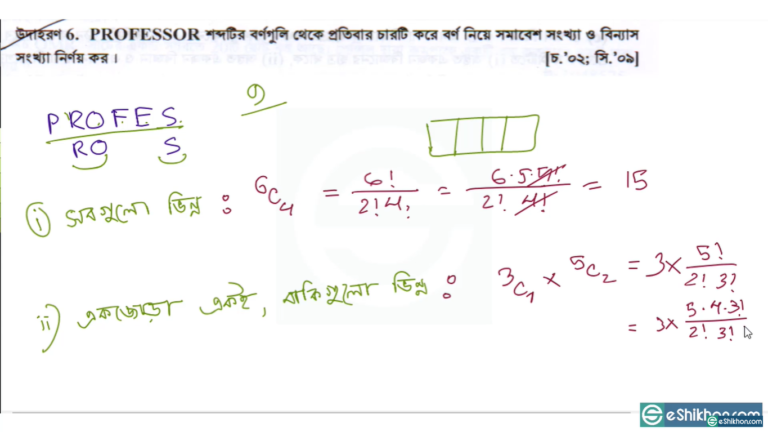 উদাহরণ 6. PROFESSOR শব্দটির বর্ণগুলি থেকে প্রতিবার চারটি করে বর্ণ নিয়ে সমাবেশ সংখ্যা ও বিন্যাস
সংখ্যা নির্ণয় কর। [চ.'০২; সি.'০৯]
PROFES.
RO S
(i) সবগুলো ভিন্ন : ⁶C₄ = 6!/2!4! = 6·5·4!/2! 4! = 15
ii) একজোড়া একই, বাকিগুলো ভিন্ন : ³C₁ × ⁵C₂ = 3× 5!/2! 3!
= 3× 5·4·3!/2! 3!
eShikhon.com
eShikhon.com